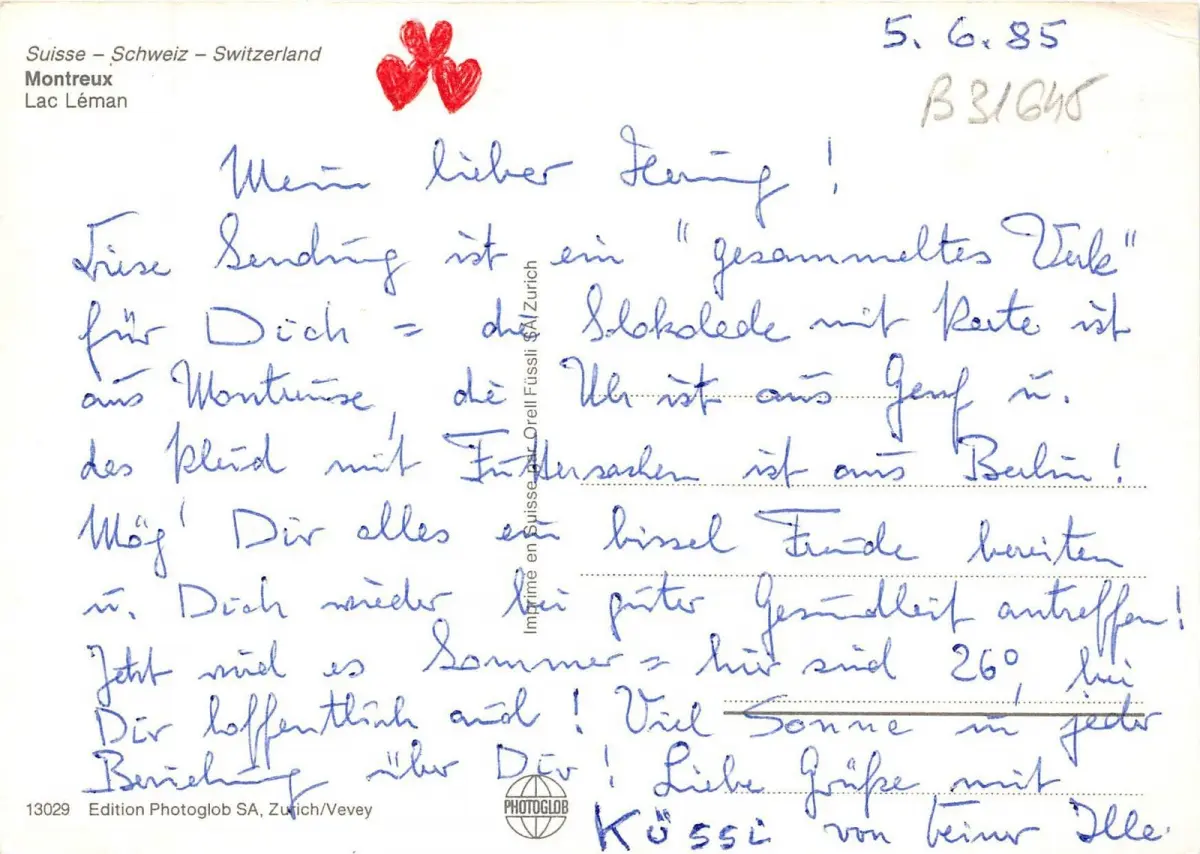 Suisse – Schweiz – Switzerland
Montreux
Lac Léman
5. 6. 85
B 31645
Mein lieber !
Diese Sendung ist ein "gesammeltes Werk"
für Dich = die Schokolade mit Karte ist
aus Montreux, die Uhr ist aus Genf u.
das Kleid mit ist aus Berlin!
Mög' Dir alles ein bissel Freude bereiten
u. Dich wieder bei guter Gesundheit antreffen!
Jetzt wird es Sommer = hier sind 26°, bei
Dir hoffentlich auch! Viel Sonne in jeder
Beziehung über Dir! Liebe Grüße mit
Küssi von Deiner Ille
Imprimé en Suisse par Orell Füssli SA Zurich
13029 Edition Photoglob SA, Zurich/Vevey
PHOTOGLOB